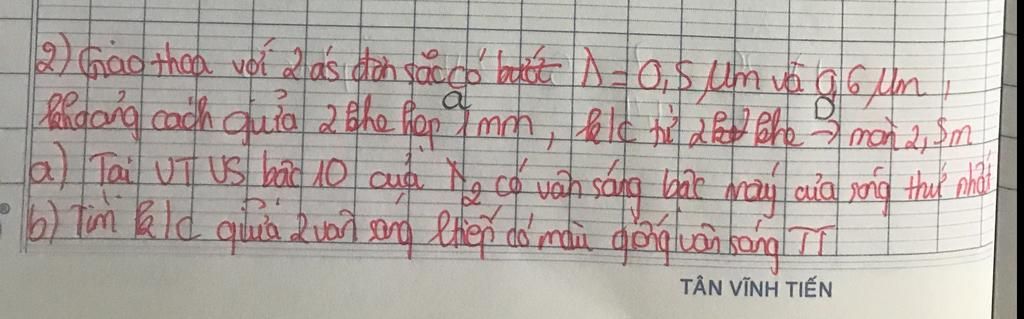 2) Giao thoa với 2 as đơn sắc có bước λ = 0,5 μm và 0,6 μm,
khoảng cách giữa 2 khe hẹp a 1 mm, k/c từ 2 khe → màn D 2,5m
a) Tại VT VS bậc 10 của λ2 có vân sáng bậc mấy của sóng thứ nhất
b) Tìm k/c giữa 2 vân sáng liên tiếp đó màu giống vân sáng TT
TÂN VĨNH TIẾN